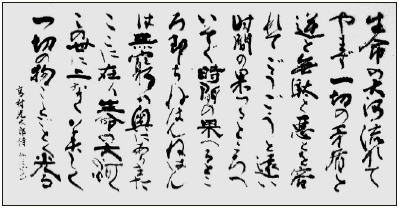 生命の大河流れて
やまず一切の矛盾と
逆と無駄と悪とを容
れてごうごうと遠い
時間の果つるところへ
いそぐ時間の果つるとこ
ろ即ちねはんねはん
は無窮の奥にありまた
ここに在り生命の大河
この世に二なく美しく
一切の物ことごとく光る
高村光太郎詩